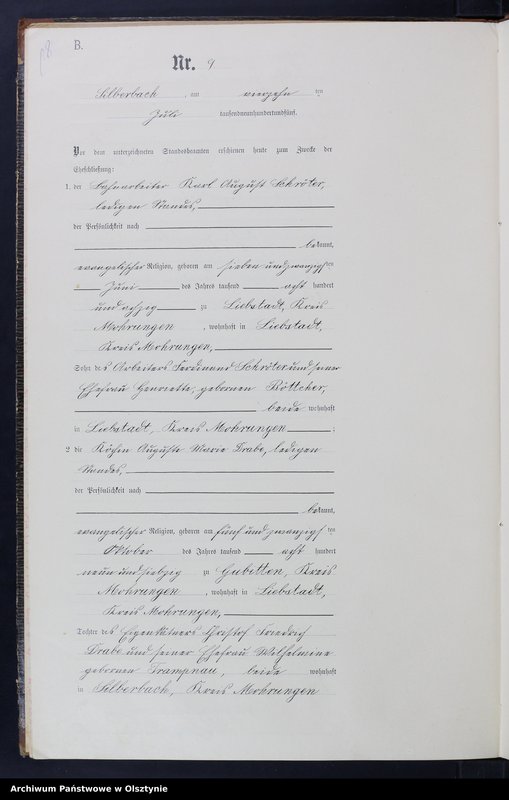 B.
Nr. 9
Silberbach, am vierzehn ten
Juli tausendneunhundertundfünf.
Vor dem unterzeichneten Standesbeamten erschienen heute zum Zwecke der
Eheschließung:
1. der Bahnarbeiter Karl August Schröter,
ledigen Standes,
der Persönlichkeit nach
bekannt,
evangelischer Religion, geboren am sieben und zwanzigsten
Juni des Jahres tausend acht hundert
und achzig zu Liebstadt, Kreis
Mohrungen, wohnhaft in Liebstadt,
Kreis Mohrungen,
Sohn des Arbeiters Ferdinand Schröter und seiner
Ehefrau Henriette, geborenen Böttcher,
beide wohnhaft
in Liebstadt, Kreis Mohrungen;
2 die Köchin Auguste Marie Drabe, ledigen
Standes,
der Persönlichkeit nach
bekannt,
evangelischer Religion, geboren am fünf und zwanzigsten
Oktober des Jahres tausend acht hundert
neun und siebzig zu Gubitten, Kreis
Mohrungen, wohnhaft in Liebstadt,
Kreis Mohrungen,
Tochter des Eigenkätners Christof Friedrich
Drabe und seiner Ehefrau Wilhelmine
geborenen Trampnau, beide wohnhaft
in Silberbach, Kreis Mohrungen
Archiwum Państwowe w Olsztynie